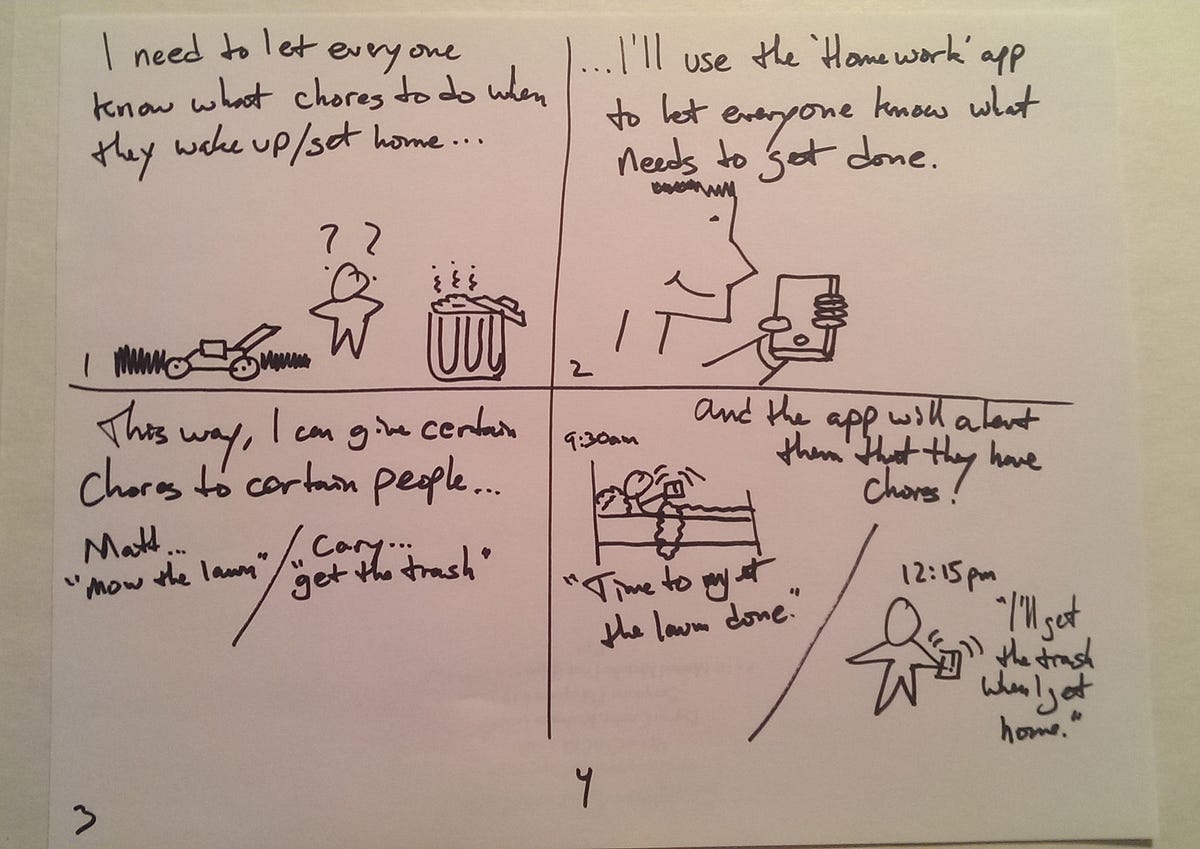 I need to let everyone
know what chores to do when
they wake up/get home...
? ?
1
...I'll use the 'Homework' app
to let everyone know what
needs to get done.
2
This way, I can give certain
chores to certain people...
Matt...
"mow the lawn"
Cary...
"get the trash"
3
and the app will alert
them that they have
chores!
9:30am
"Time to get
the lawn done."
12:15pm
"I'll get
the trash
when I get
home."
4